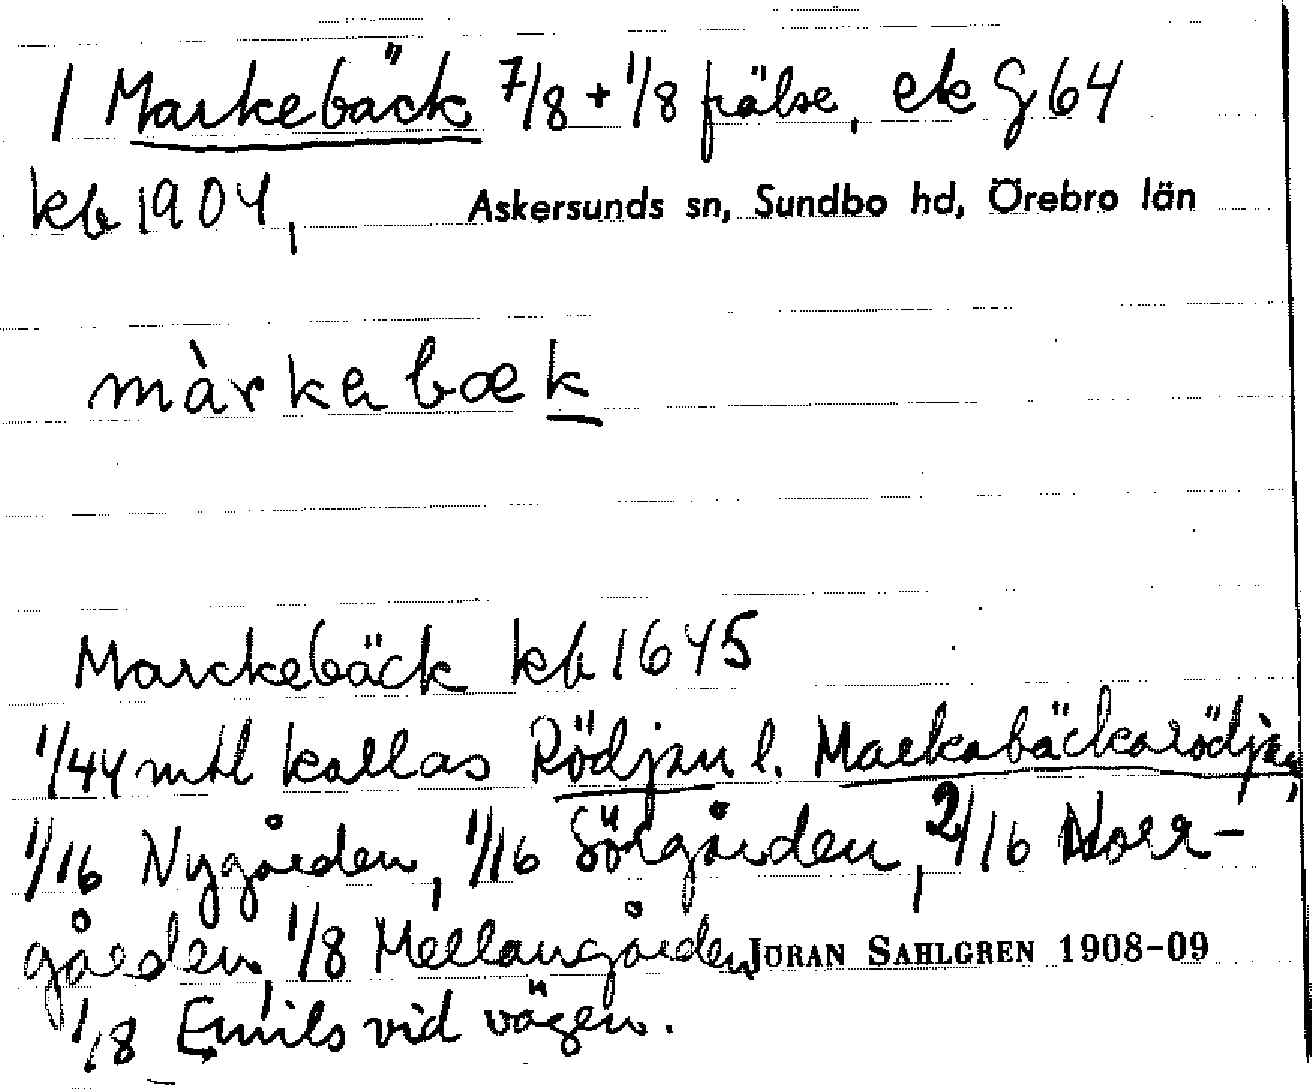 1 Markebäck 7/8 + 1/8 frälse, ek G 64
kb 1904,
Askersunds sn, Sundbo hd, Örebro län
màrkabæk
Marckebäck kb 1645
1/44 mtl kallas Rödjan l. Markabäckarödjan,
1/16 Nygården, 1/16 Sörgården, 2/16 Norr-
gården, 1/8 Mellangården
JÖRAN SAHLGREN 1908-09
1/8 Emils vid vägen.